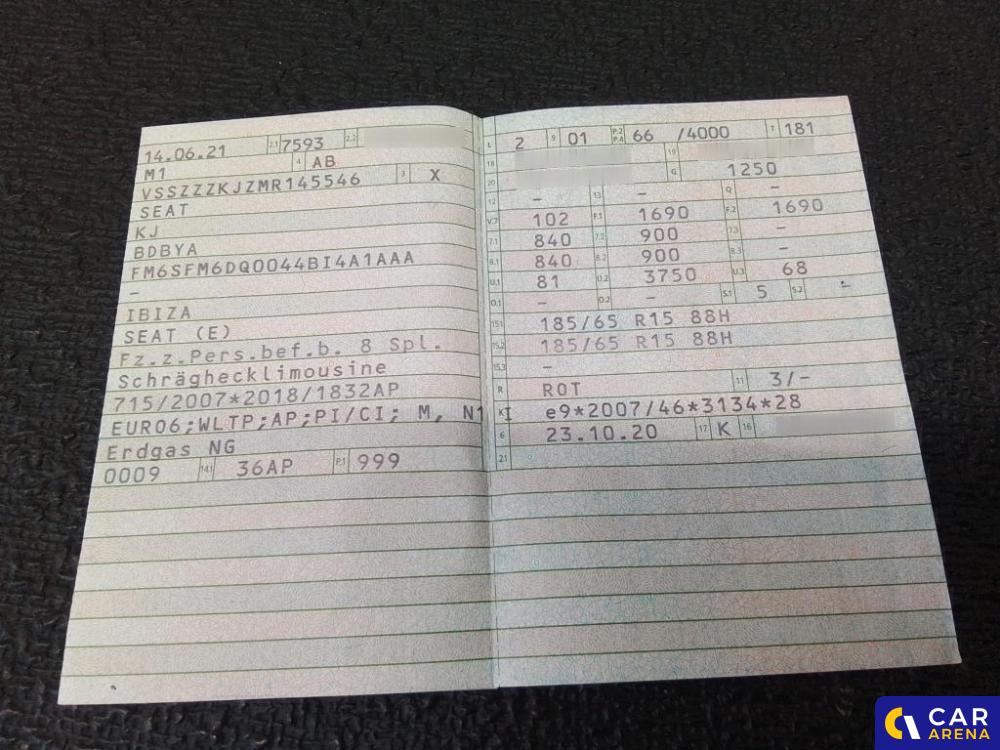 14.06.21 2.1 7593 2.2
M1 4 AB
VSSZZZKJZMR145546 3 X
SEAT
KJ
BDBYA
FM6SFM6DQ0044BI4A1AAA
–
IBIZA
SEAT (E)
Fz.z.Pers.bef.b. 8 Spl.
Schräghecklimousine
715/2007*2018/1832AP
EURO6;WLTP;AP;PI/CI; M, N1 I
Erdgas NG
0009 14.1 36AP P.1 999
L 2 9 01 P.2 P.4 66 /4000 T 181
18 19
20 G 1250
12 – 13 – Q –
V.7 102 F.1 1690 F.2 1690
7.1 840 7.2 900 7.3 –
8.1 840 8.2 900 8.3 –
U.1 81 U.2 3750 U.3 68
O.1 – O.2 – S.1 5 S.2 –
15.1 185/65 R15 88H
15.2 185/65 R15 88H
15.3 –
R ROT 11 3/–
K e9*2007/46*3134*28
6 23.10.20 17 K 16
21
CAR
ARENA